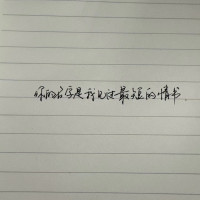 你的名字是我见过最短的情书